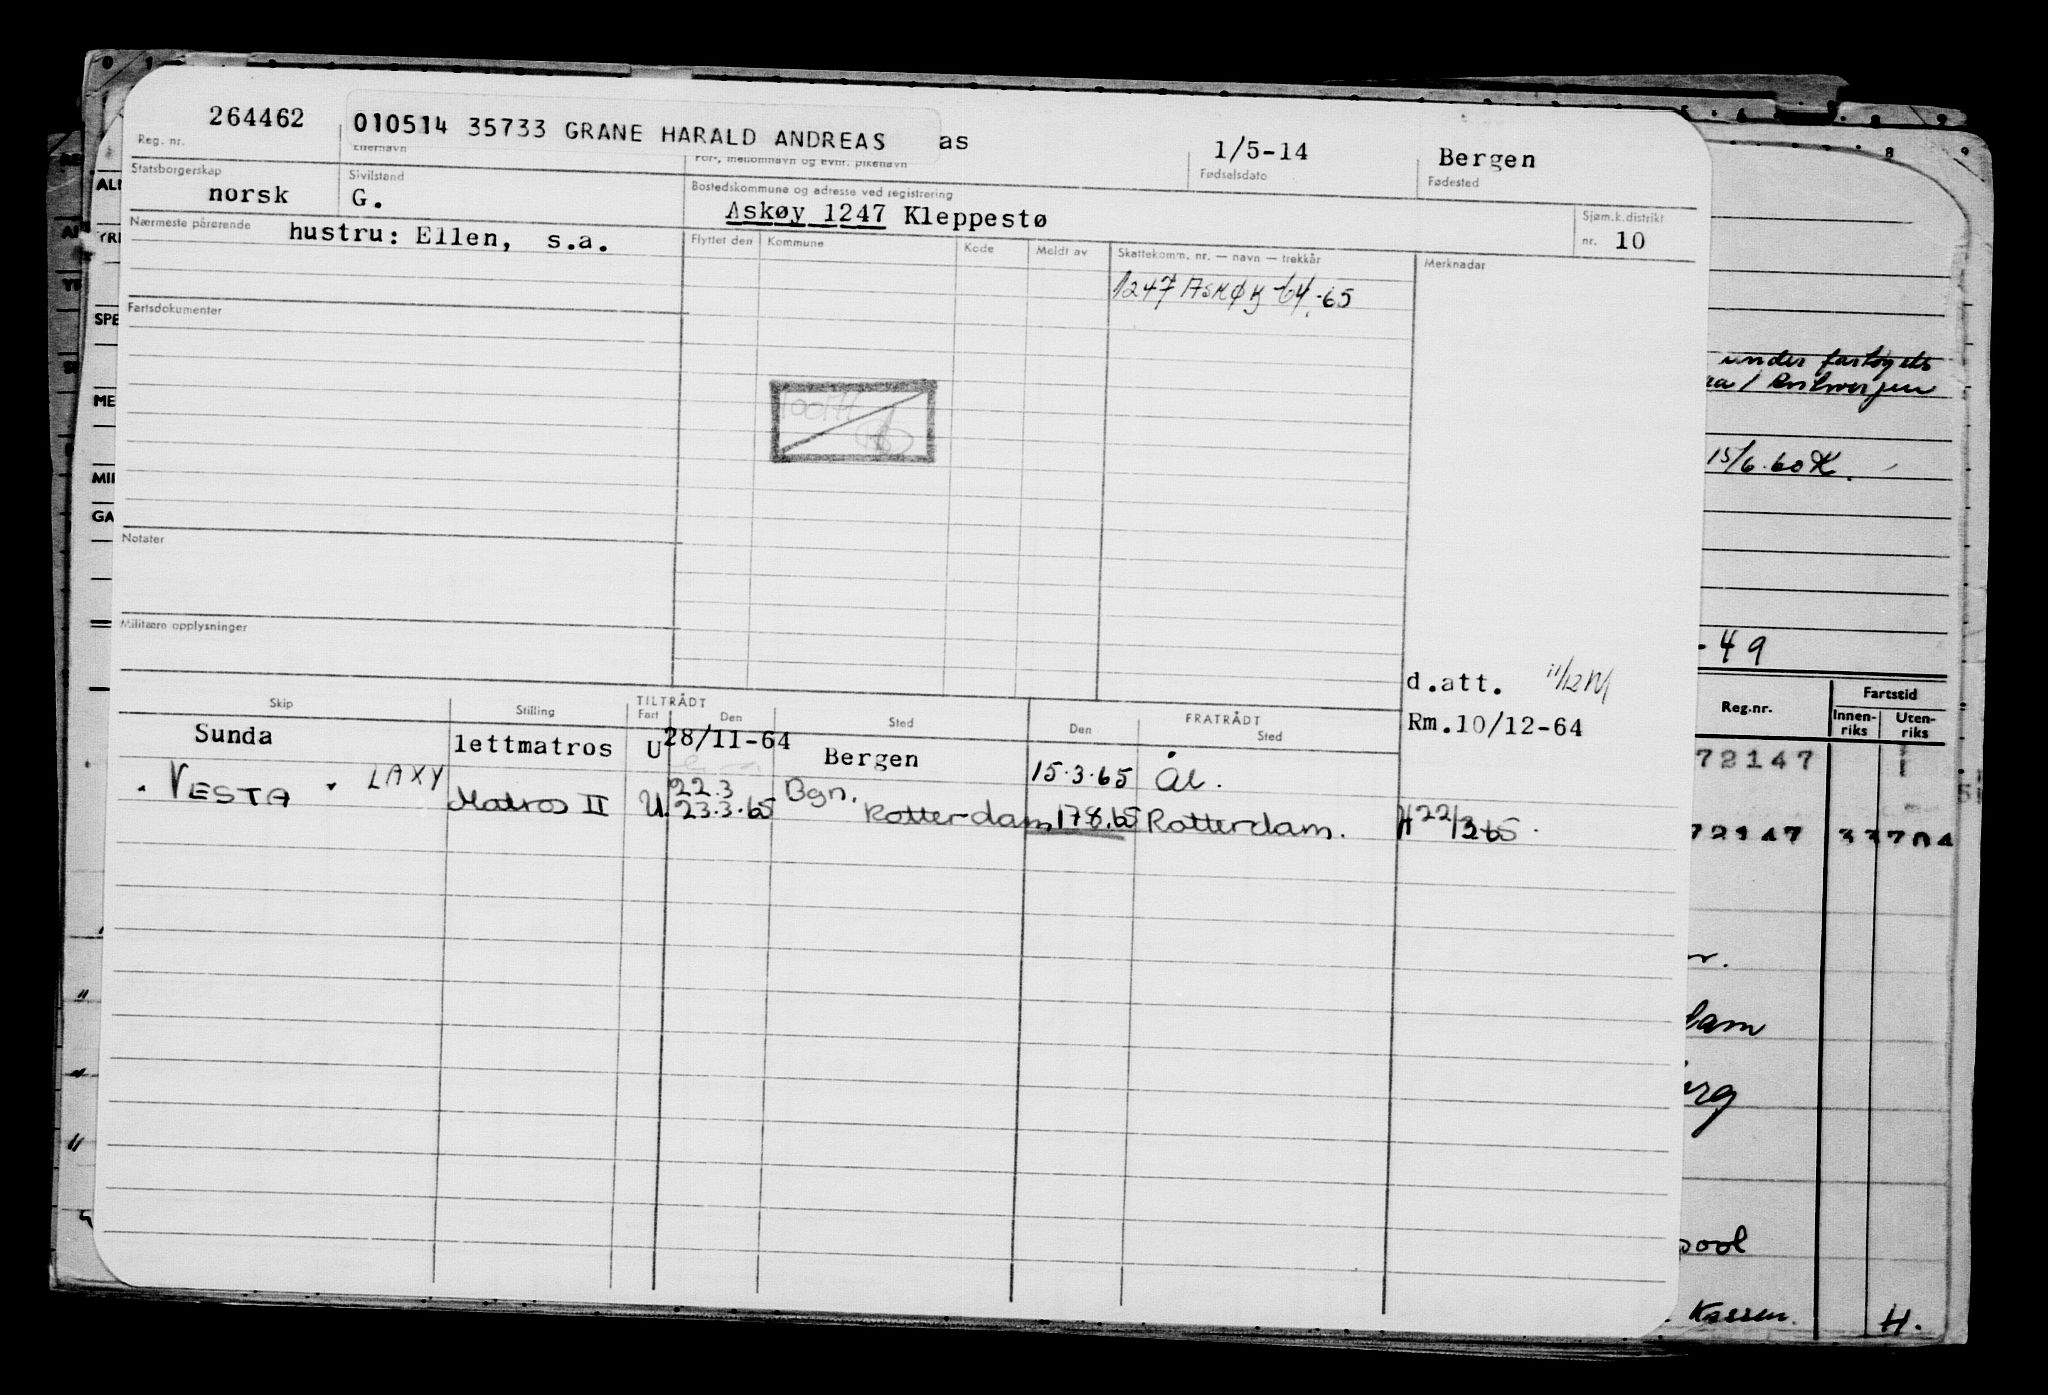 264462 010514 35733 GRANE HARALD ANDREAS as 1/5-14 Bergen
Reg. nr. Etternavn For-, mellomnavn og evnt. pikenavn Fødselsdato Fødested
Statsborgerskap Sivilstand Bostedskommune og adresse ved registrering Sjøm.k.distrikt
norsk G. Askøy 1247 Kleppestø nr. 10
Nærmeste pårørende hustru: Ellen, s.a. Flyttet den Kommune Kode Meldt av Skattekomm. nr. — navn — trekkår Merknader
1247 ASKØY -64.-65
Fartsdokumenter
Notater
Militære opplysninger
d.att. 11/12
Skip Stilling TILTRÅDT Fart Den Sted FRATRÅDT Den Sted
Rm.10/12-64
Sunda lettmatros U 28/11-64 Bergen 15.3.65 Ål.
. VESTA . LAXY Matros II U. 22.3 23.3.65 Bgn. Rotterdam 17.8.65 Rotterdam. H 22/3-65.
ME
SPE
MIL
GA
under fartøyets
15/6.60
-49
Reg.nr. Fartstid
Innen-riks Uten-riks
72147
72147 33704
H.